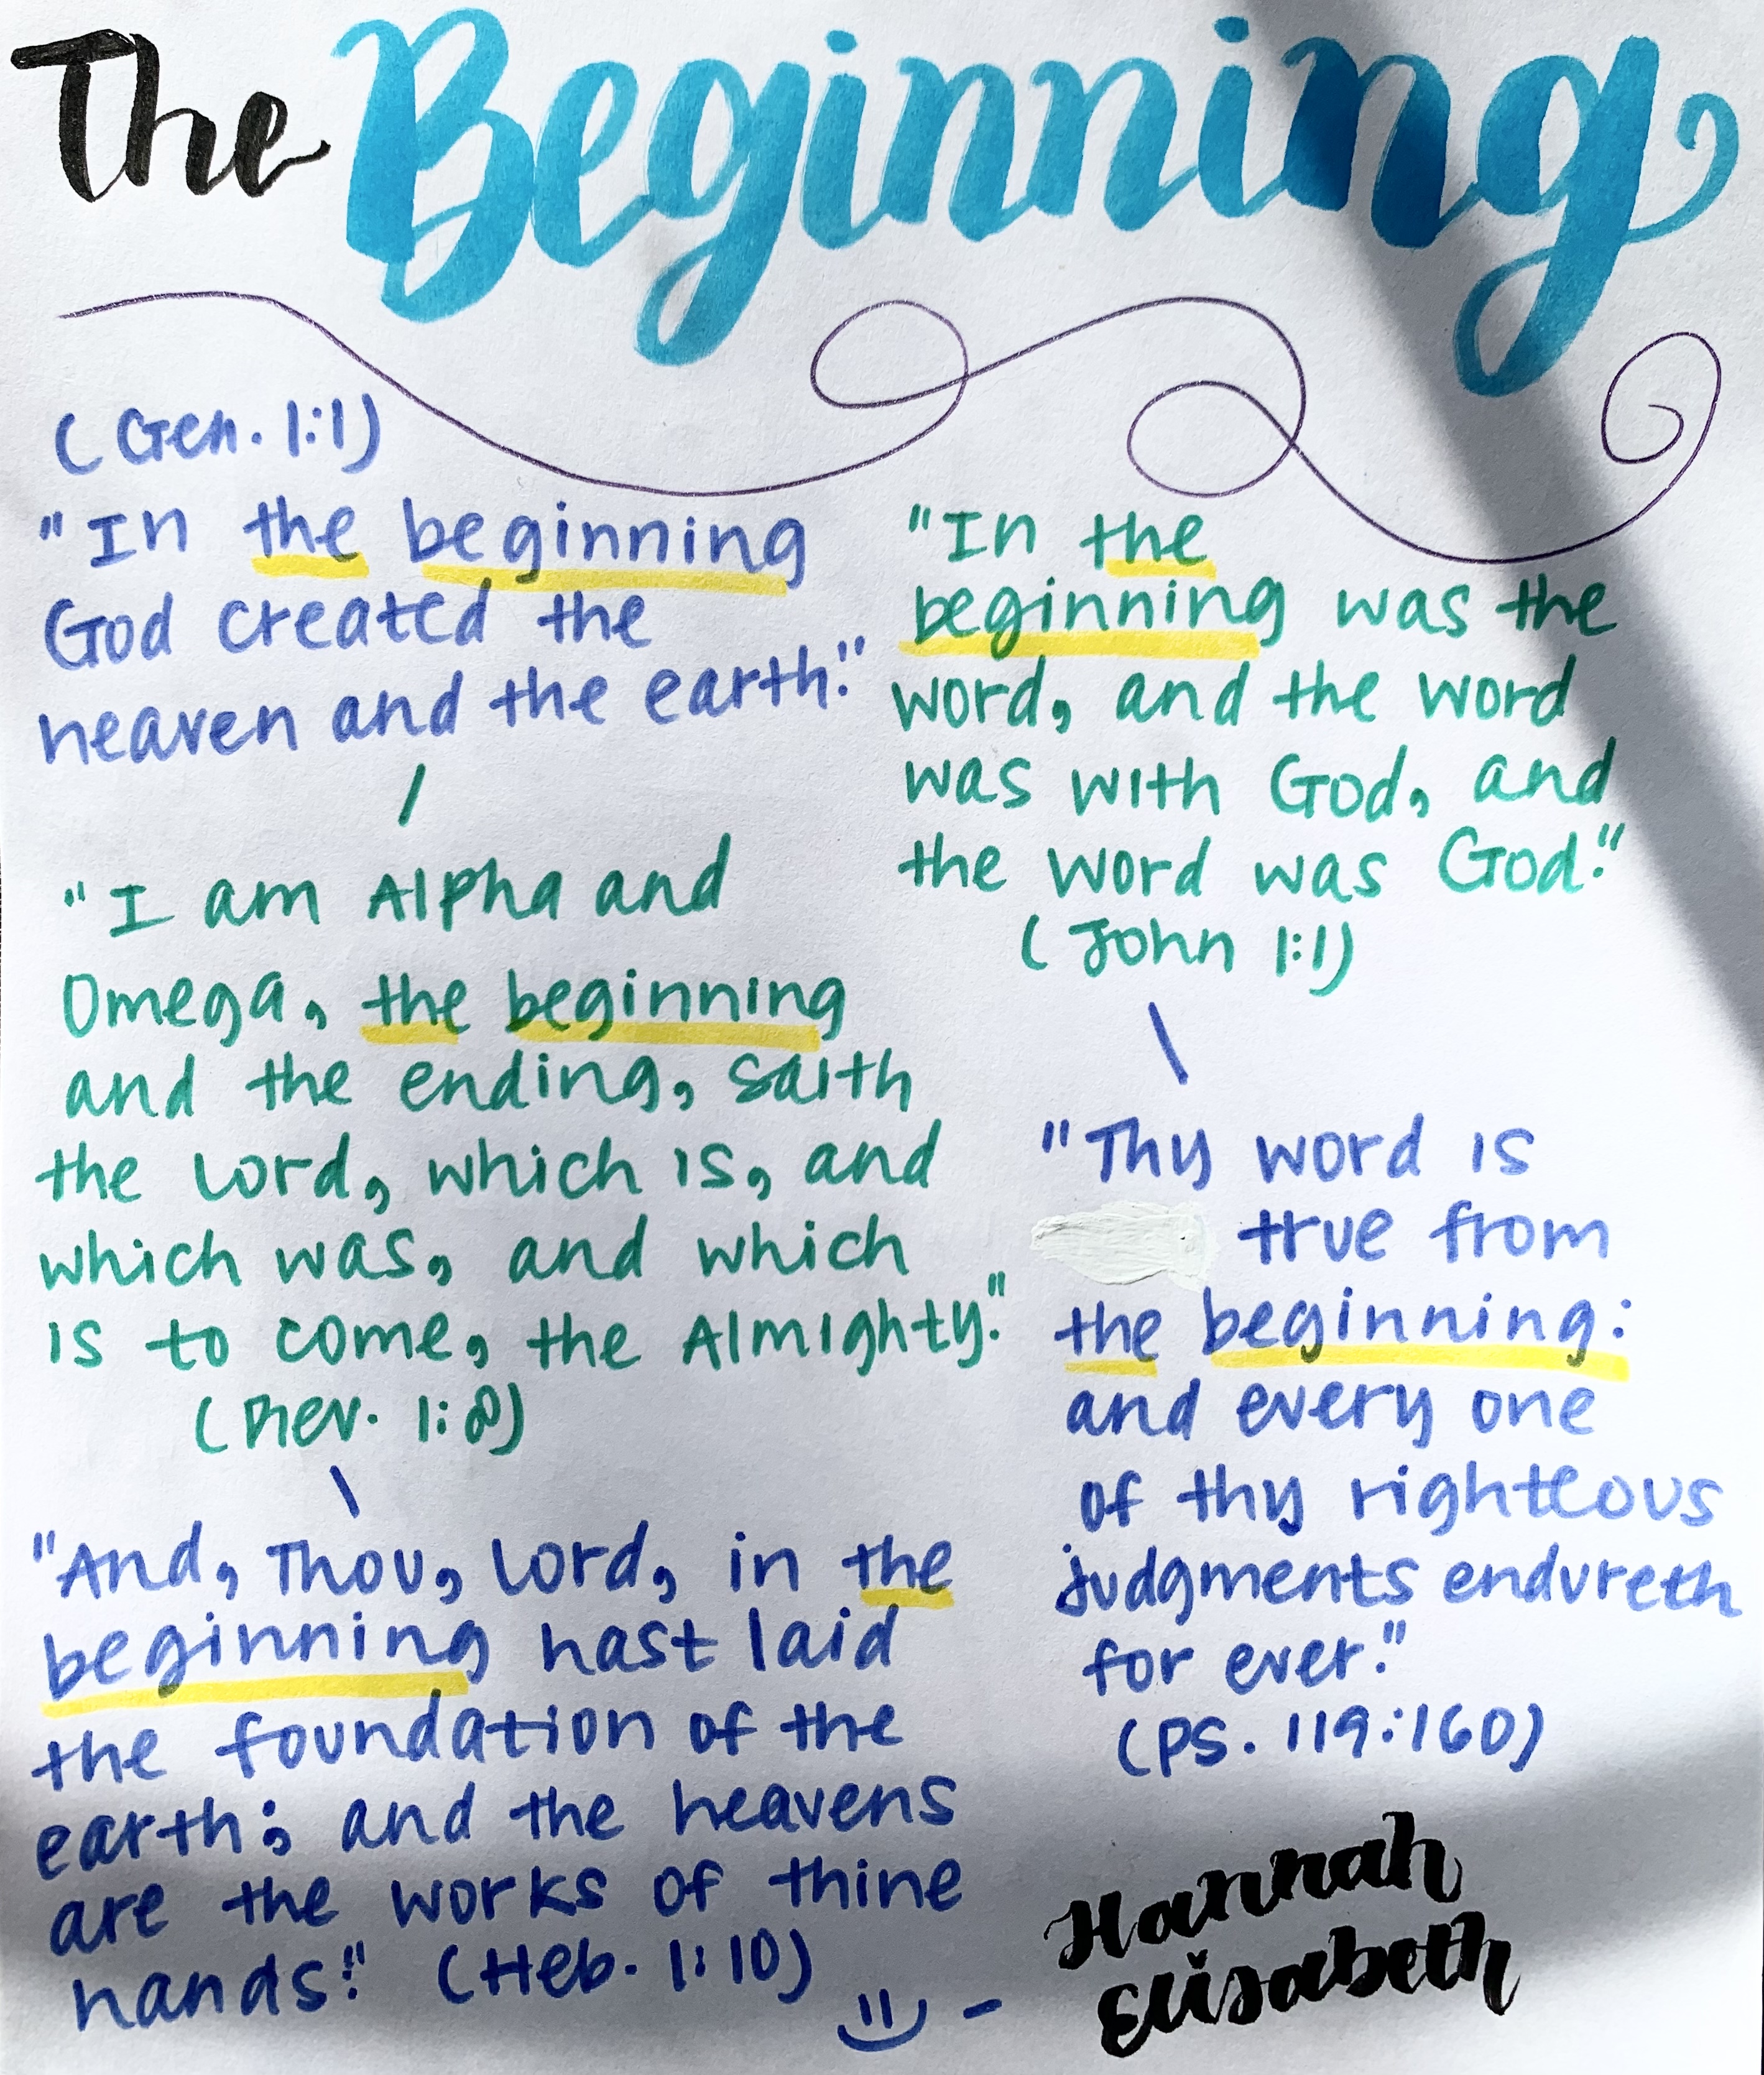 The Beginning
(Gen. 1:1)
"In the beginning
God created the
heaven and the earth."
"I am Alpha and
Omega, the beginning
and the ending, saith
the Lord, which is, and
which was, and which
is to come, the Almighty."
(Rev. 1:8)
"And, Thou, Lord, in the
beginning hast laid
the foundation of the
earth; and the heavens
are the works of thine
hands." (Heb. 1:10)
"In the
beginning was the
word, and the word
was with God, and
the word was God."
(John 1:1)
"Thy word is
true from
the beginning:
and every one
of thy righteous
judgments endureth
for ever."
(PS. 119:160)
- Hannah
Elisabeth